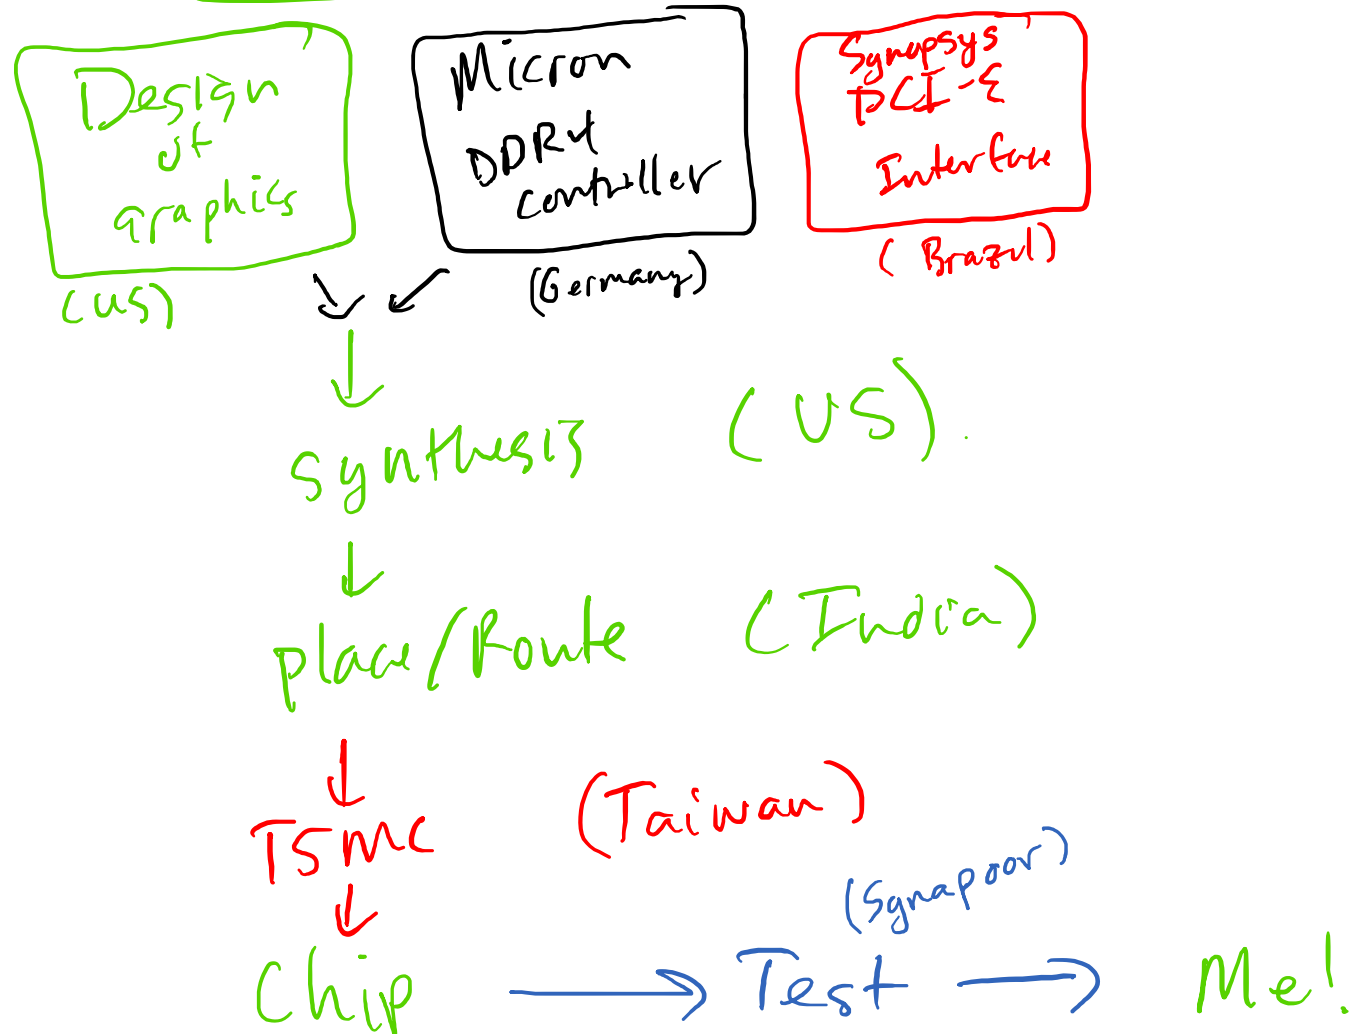 Design
of
graphics
(US)
Micron
DDR4
controller
(Germany)
Synopsys
PCI-E
Interface
(Brazil)
synthesis (US).
place/Route (India)
TSMC (Taiwan)
(Synapoor)
Chip Test Me!